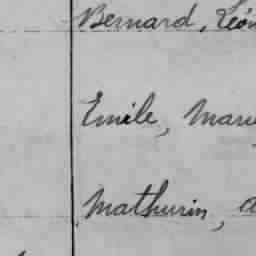 Bernard, Léon
Emile, Marie
Mathurin,